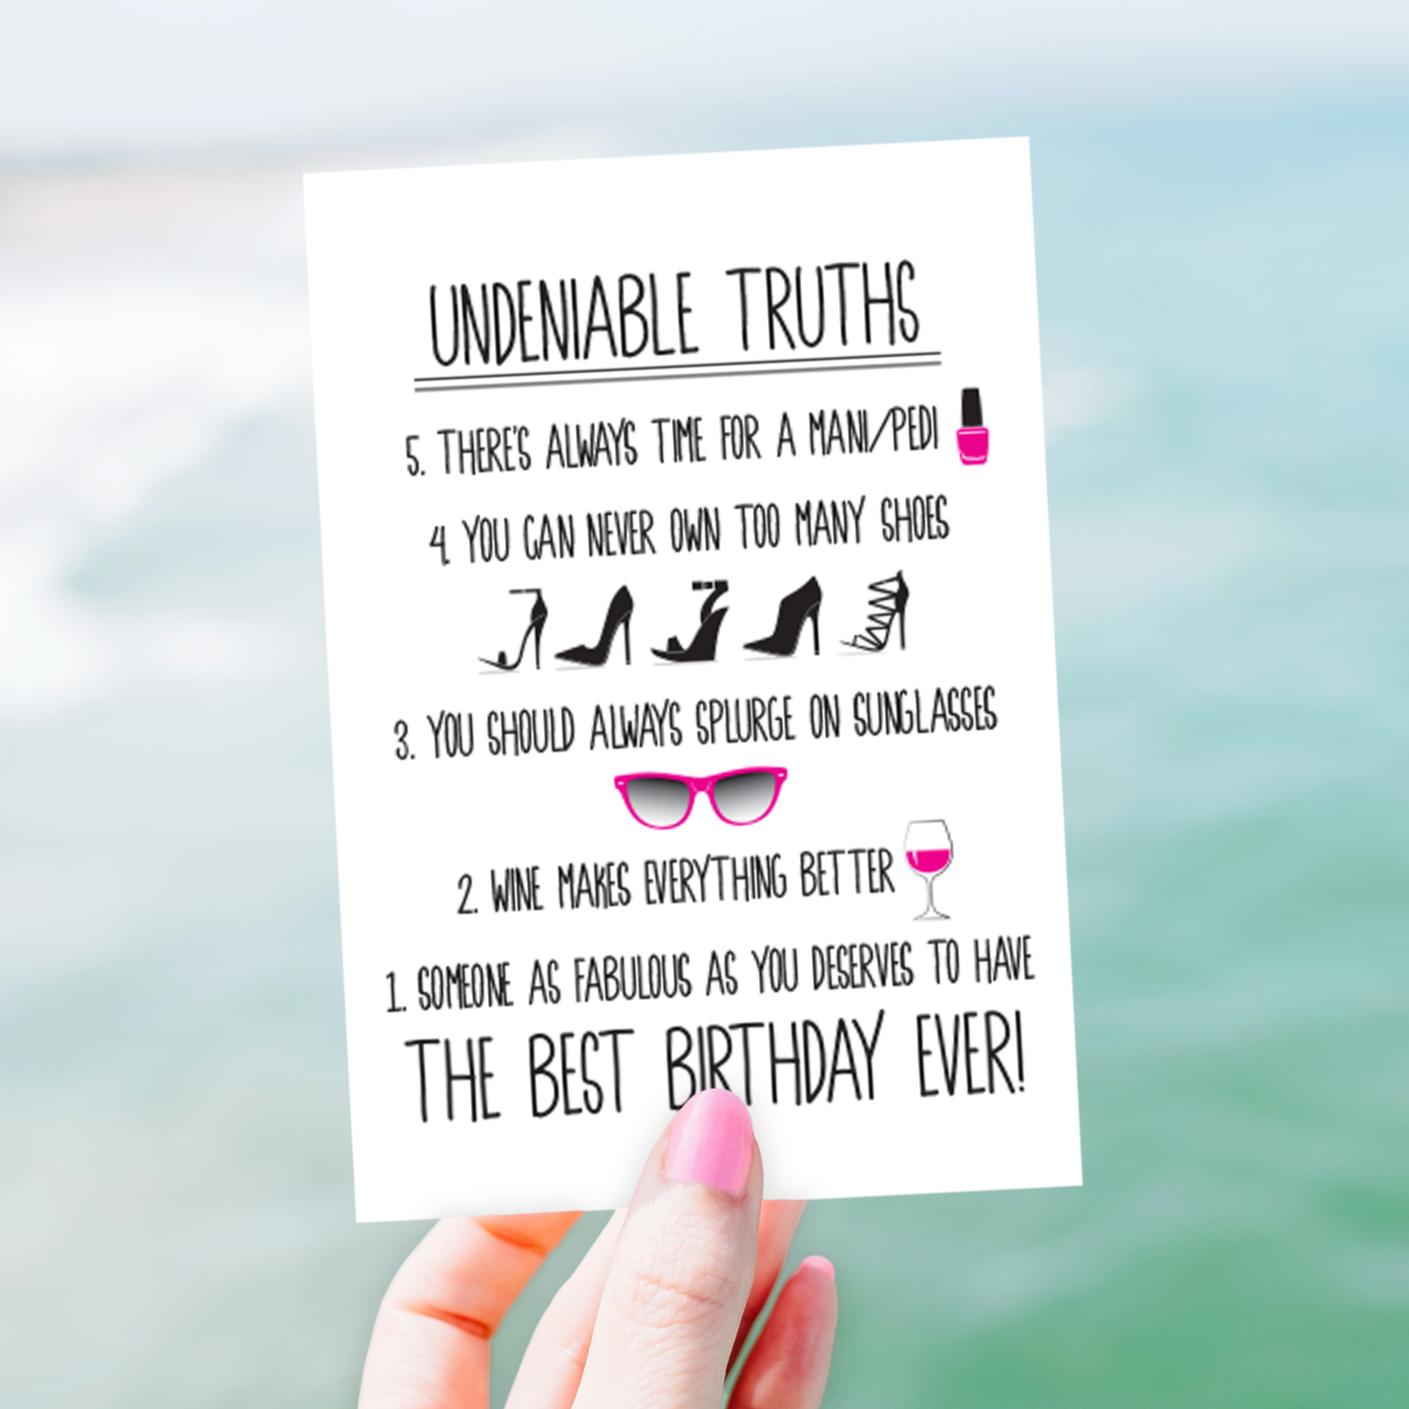 UNDENIABLE TRUTHS
5. THERE'S ALWAYS TIME FOR A MANI/PEDI
4. YOU CAN NEVER OWN TOO MANY SHOES
3. YOU SHOULD ALWAYS SPLURGE ON SUNGLASSES
2. WINE MAKES EVERYTHING BETTER
1. SOMEONE AS FABULOUS AS YOU DESERVES TO HAVE
THE BEST BIRTHDAY EVER!